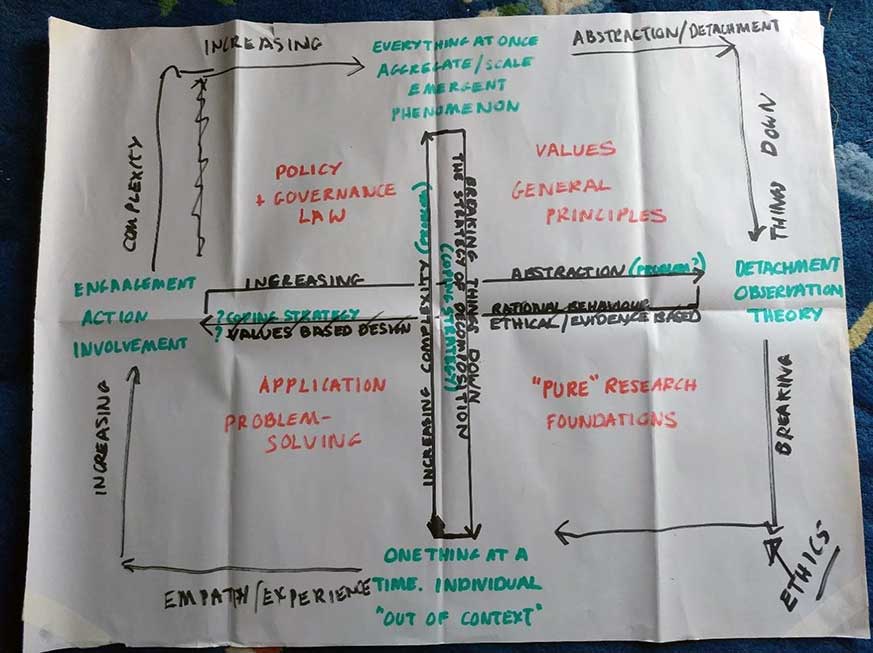 INCREASING
EVERYTHING AT ONCE
AGGREGATE/SCALE
EMERGENT
PHENOMENON
ABSTRACTION/DETACHMENT
COMPLEXITY
POLICY
+ GOVERNANCE
LAW
VALUES
GENERAL
PRINCIPLES
THING DOWN
ENGAAGEMENT
ACTION
INVOLVEMENT
INCREASING
ABSTRACTION (PROBLEM?)
? COPING STRATEGY
? VALUES BASED DESIGN
RATIONAL BEHAVIOUR
ETHICAL/EVIDENCE BASED
DETACHMENT
OBSERVATION
THEORY
INCREASING COMPLEXITY (PROBLEM)
BREAKING THINGS DOWN
THE STRATEGY OF DECOMPOSITION
(COPING STRATEGY?)
INCREASING
APPLICATION
PROBLEM-
SOLVING
"PURE" RESEARCH
FOUNDATIONS
BREAKING
EMPATH/EXPERIENCE
ONE THING AT A
TIME. INDIVIDUAL
"OUT OF CONTEXT"
ETHICS